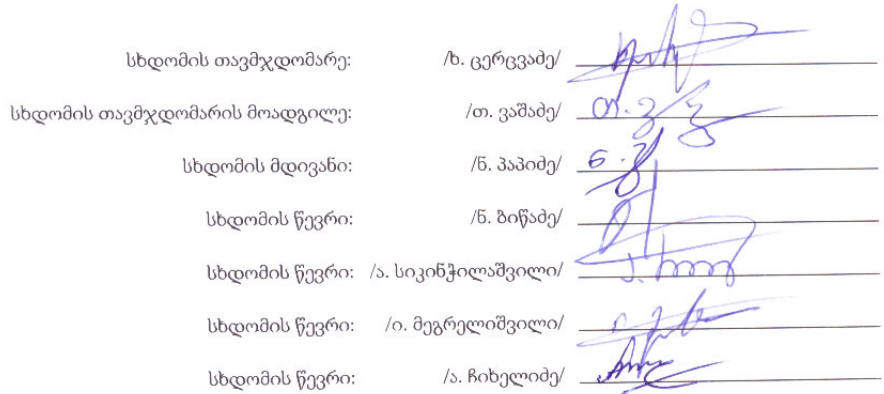 სხდომის თავმჯდომარე: /ხ. ცერცვაძე/
სხდომის თავმჯდომარის მოადგილე: /თ. ვაშაძე/
სხდომის მდივანი: /ნ. პაპიძე/
სხდომის წევრი: /ნ. ბიწაძე/
სხდომის წევრი: /ა. სიკინჭილაშვილი/
სხდომის წევრი: /ი. მეგრელიშვილი/
სხდომის წევრი: /ა. ჩიხელიძე/